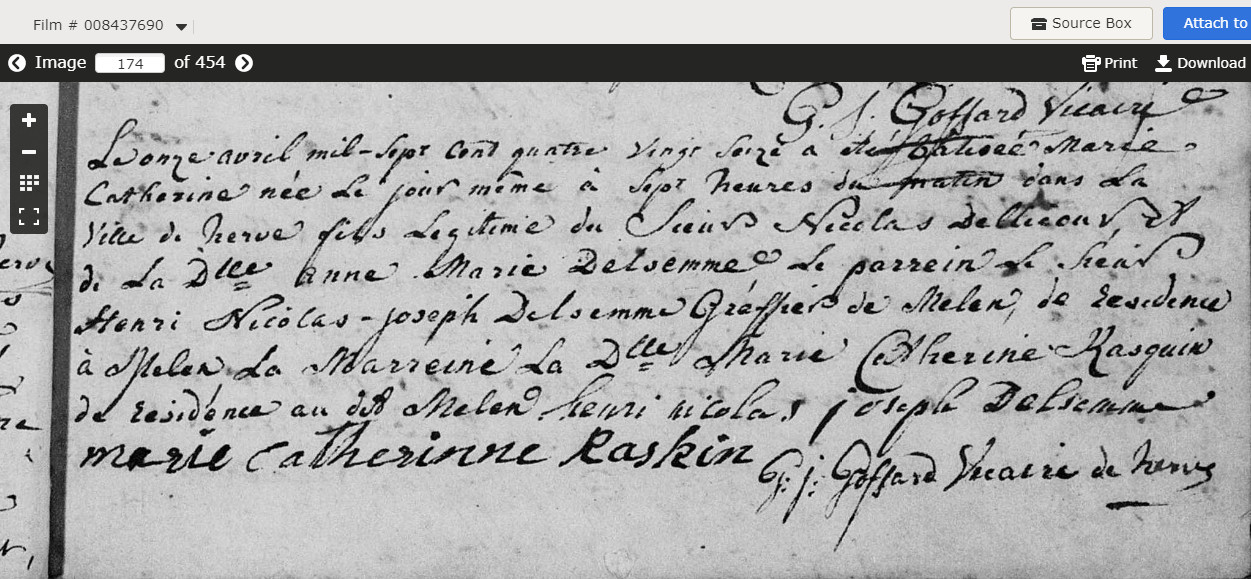 Film # 008437690
Source Box
Attach to
Image 174 of 454
Print
Download
G. J. Goffard Vicaire
Le onze avril mil-sept cent quatre vingt seize a été batisée Marie
Catherine née Le jour même à sept heures du matin dans La
Ville de herve fils Legitime du Sieur Nicolas Dellicour, et
de La Dlle anne Marie Delsemme Le parrein Le sieur
Henri Nicolas-joseph Delsemme Greffier de Melen, de residence
à Melen La Marreine La Dlle Marie Catherine Rasquin
de residence au dit Melen henri nicolas joseph Delsemme
marie Catherinne Raskin
G: j: Goffard Vicaire de herve